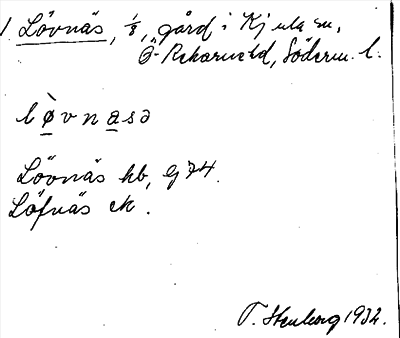 1. Lövnäs, 1/8, gård i Kjula sn,
Ö.-Rekarne hd, Söderm. l.
lòvnasə
Lövnäs hb, G74.
Löfnäs ek.
T. Stenborg 1932.